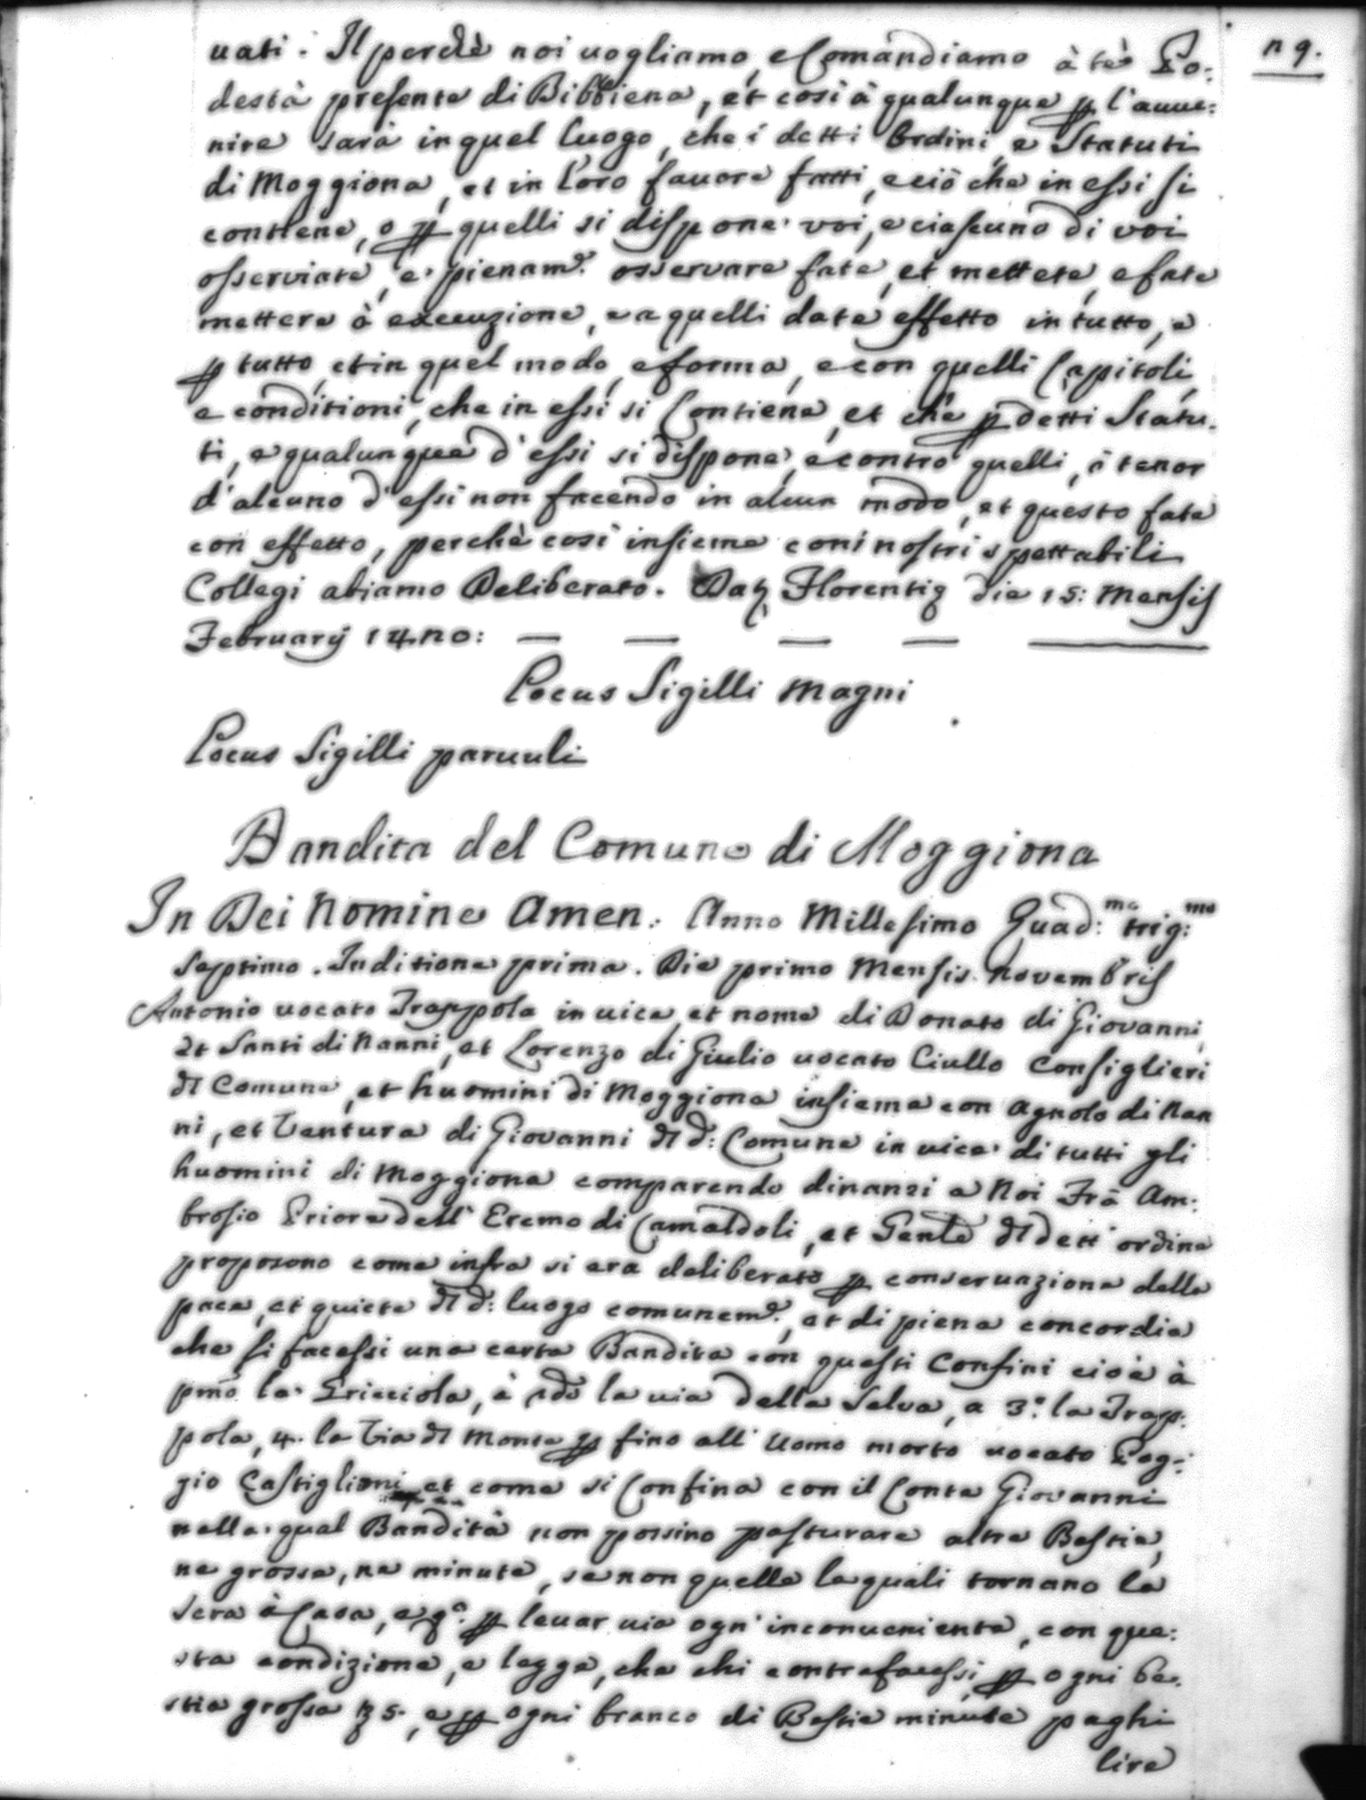 n 9.
uati. Il perchè noi uogliamo, e Comandiamo à tè Po:
destà presente di Bibbiena, et così à qualunque p l'auue:
nire sarà in quel luogo, che i detti Ordini, e Statuti
di Moggiona, et in loro fauore fatti, e ciò che in essi si
contiene, o p quelli si dispone voi, e ciascuno di voi
osserviate, e pienam.e osservare fate, et mettete, e fate
mettere à execuzione, e a quelli date effetto in tutto, e
p tutto, et in quel modo, e forma, e con quelli Capitoli,
e conditioni, che in essi si Contiene, et che p detti Statu.
ti, e qualunque d'essi si dispone, e contro quelli, ò tenor
d'alcuno d'essi non facendo in alcun modo, et questo fate
con effetto, perchè così insieme con i nostri spettabili
Collegi abiamo Deliberato. Dat Florentię die 15: Mensis
February 14n0:
Locus Sigilli Magni
Locus Sigilli paruuli
Bandita del Comune di Moggiona
In Dei Nomine Amen. Anno Millesimo Quad:mo trig:mo
Septimo. Inditione prima. Die primo Mensis Novembris
Antonio uocato Trappola in uice, et nome di Donato di Giovanni,
et Santi di Nanni, et Lorenzo di Giulio uocato Ciullo Consiglieri
dl Comune, et huomini di Moggiona insieme con Agnolo di Nan
ni, et Ventura di Giovanni dl d: Comune in uice di tutti gli
huomini di Moggiona comparendo dinanzi a Noi Frà Am:
brosio Priore dell' Eremo di Camaldoli, et Genle dl dett' ordine
proposono come infra si era deliberato p conseruazione della
pace, et quiete dl d: luogo comunem.e, et di piena concordia
che si facessi una certa Bandita con questi Confini cioè à
pmo la Pricciola, à 2do la uia della Selva, a 3.o la Trap:
pola, 4. la Via dl Monte p fino all' Uomo morto uocato Pog:
gio Castiglioni et come si Confina con il Conte Giovanni
nella qual Bandita non possino pasturare altre Bestie,
ne grosse, ne minute, se non quelle le quali tornano la
sera à Casa, e q.o p leuar uia ogn' inconueniente, con que:
sta condizione, e legge, che chi contrafacessi, p ogni be.
stia grossa 5., e p ogni branco di Bestie minute paghi
lire